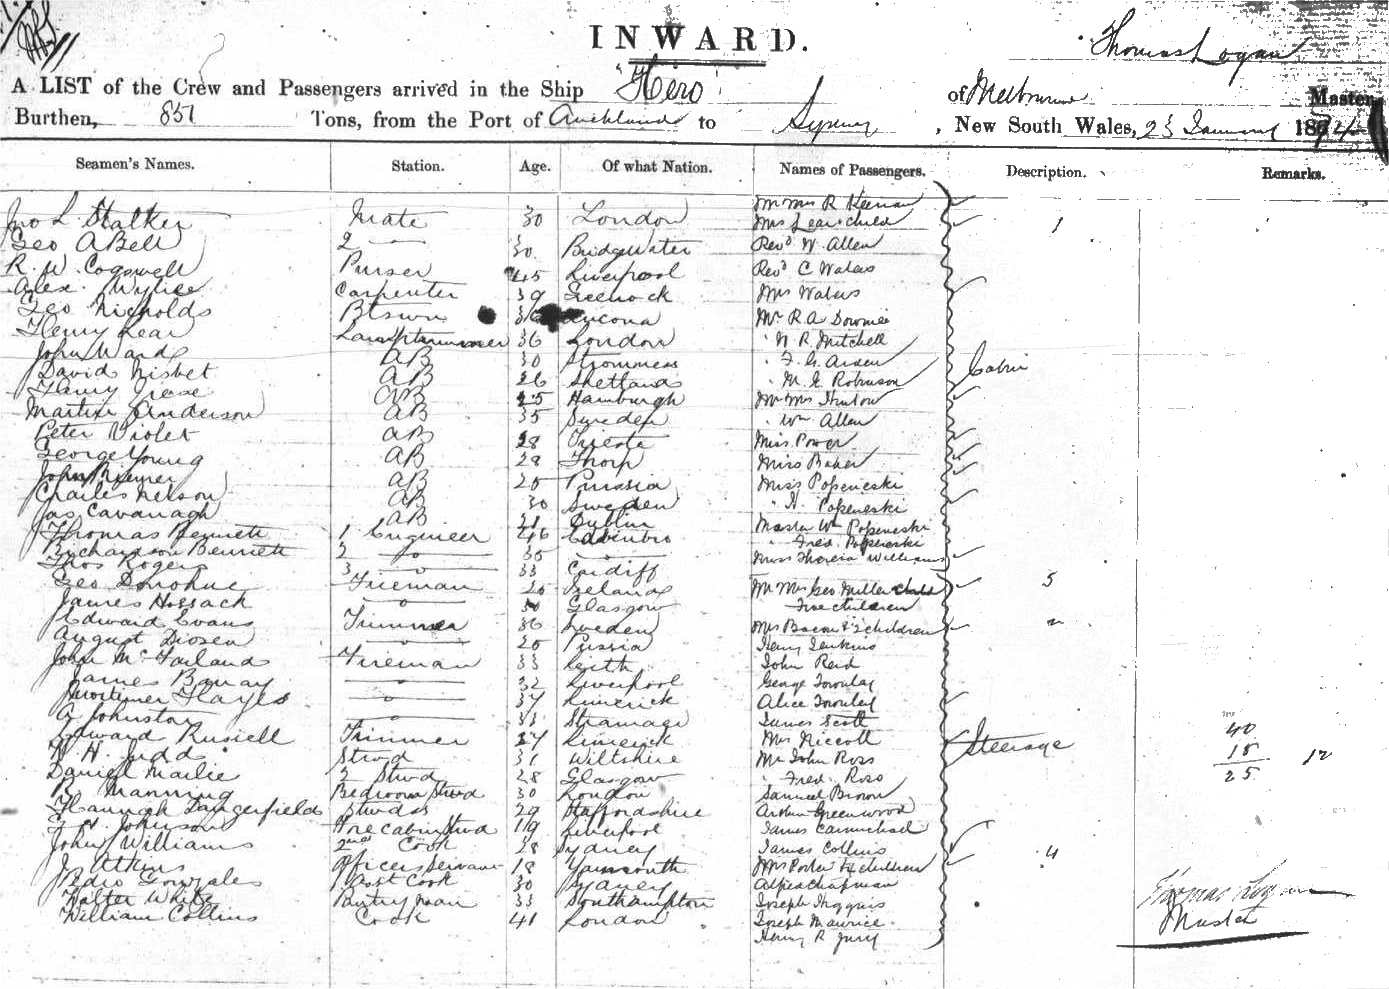 INWARD.
Thomas Logan
A LIST of the Crew and Passengers arrived in the Ship "Hero" of Melbourne Master
Burthen, 857 Tons, from the Port of Auckland to Sydney, New South Wales, 23 January 187
Seamen's Names. Station. Age. Of what Nation. Names of Passengers. Description. Remarks.
Mr Mrs R Keenan
Jno L. Stalker Mate 30 London Mrs Lear & child 1
Geo A Bell 2 30 Bridgwater Revd W. Allen
R. W. Cogswell Purser 45 Liverpool Revd C Waters
Alex. Wylie Carpenter 39 Greenock Mrs Waters
Geo Nicholds Btswn Ancona Mr R A Downie
Henry Lear Lamptrimmer 36 London " W R Mitchell
John Ward AB 30 Stromness " F. G. Arden
David Nisbet AB 26 Shetland " M. G. Robinson Cabin
Henry AB 25 Hamburgh Mr Mrs
Martin Anderson AB 35 Sweden " Wm Allen
Peter Violet AB 28 Trieste Miss Power
George Young AB 28 Thorp Miss Baker
John AB 25 Prussia Miss Popeneski
Charles Nelson AB 30 Sweden " H. Popeneski
Jas Cavanagh AB 21 Dublin Master Wm Popeneski
Thomas Bennett 1 Engineer 46 Edinbro " Fred. Popeneski
Richardson Bennett 2 do 35 Miss Theresa Williams
Thos Rogers 3 do 33 Cardiff
Geo Donohue Fireman 25 Ireland Mr Mrs Geo Miller 5
James Hossack do 30 Glasgow Five children
Edward Evans Trimmer 36 Sweden Mrs Bacon & 2 children 2
August Diosen do 25 Prussia Henry Jenkins
John McFarland Fireman 33 Leith John Reid
James do 32 Liverpool George Townley
Mortimer Hayes do 37 Limerick Alice Townley
A Johnston do 33 James Scott
Edward Russell Trimmer 27 Limerick Mrs Niccoll Steerage
W. H. Judd Stwd 31 Wiltshire Mr John Ross
Daniel Mailie 2 Stwd 28 Glasgow " Fred. Ross
R Manning Bedroom Stwd 30 London Samuel Brown
Hannah Dangerfield Stwdss 29 Staffordshire Arthur Greenwood
Johnson Fore Cabin Stwd 19 Liverpool James Carmichael
John Williams 2nd Cook 28 Sydney James Collins
J. Atkins Officers Servant 18 Yarmouth Mrs Porter & 4 children 4
Pedro Gonzales Asst Cook 30 Sydney Chapman
Walter White Pantryman 33 Southampton Joseph Higgins
William Collins Cook 41 London Joseph Maurice
Henry R Jury
40
15
25
12
Thomas Logan
Master